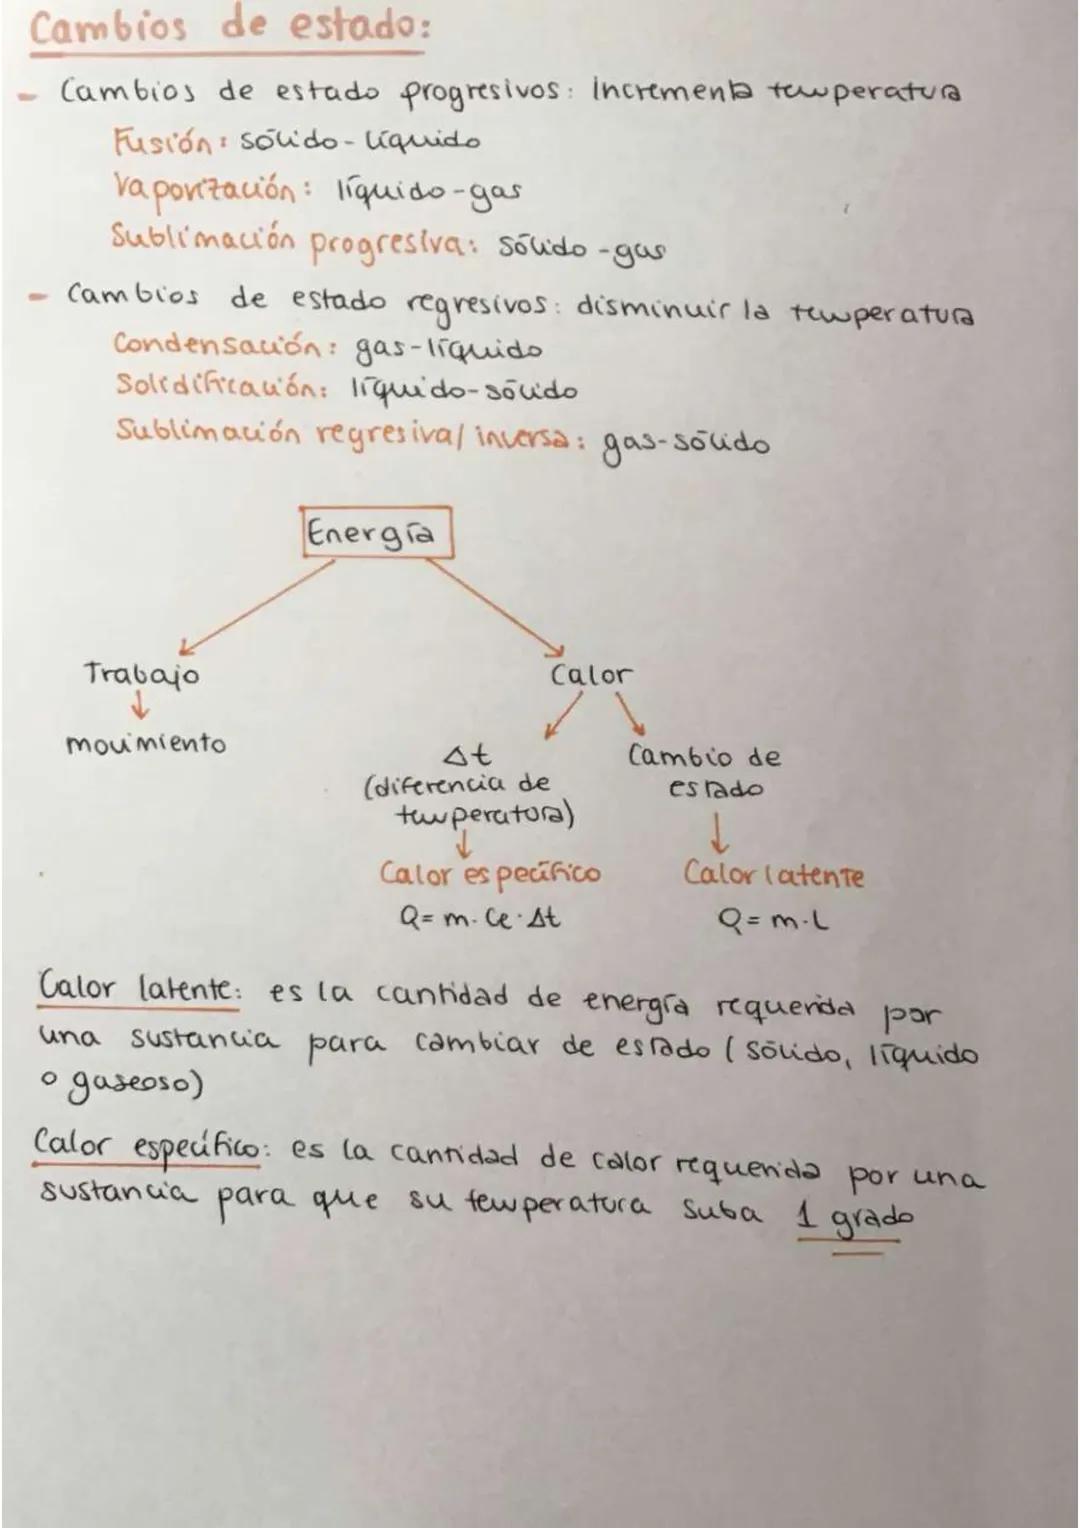 Cambios de estado:
- Cambios de estado progresivos: incrementa temperatura
Fusión: sólido-líquido
Vaporización: líquido-gas
Sublimación progresiva: sólido-gas
- Cambios de estado regresivos: disminuir la temperatura
Condensación: gas-líquido
Solidificación: líquido-sólido
Sublimación regresiva/inversa: gas-sólido
Energía
Trabajo
Calor
movimiento
Δt
(diferencia de
temperatura)
Cambio de
estado
Calor específico
Calor latente
Q= m·Ce·Δt
Q= m·L
Calor latente: es la cantidad de energía requerida por
una sustancia para cambiar de estado (sólido, líquido
o gaseoso)
Calor específico: es la cantidad de calor requerida por una
sustancia para que su temperatura suba 1 grado